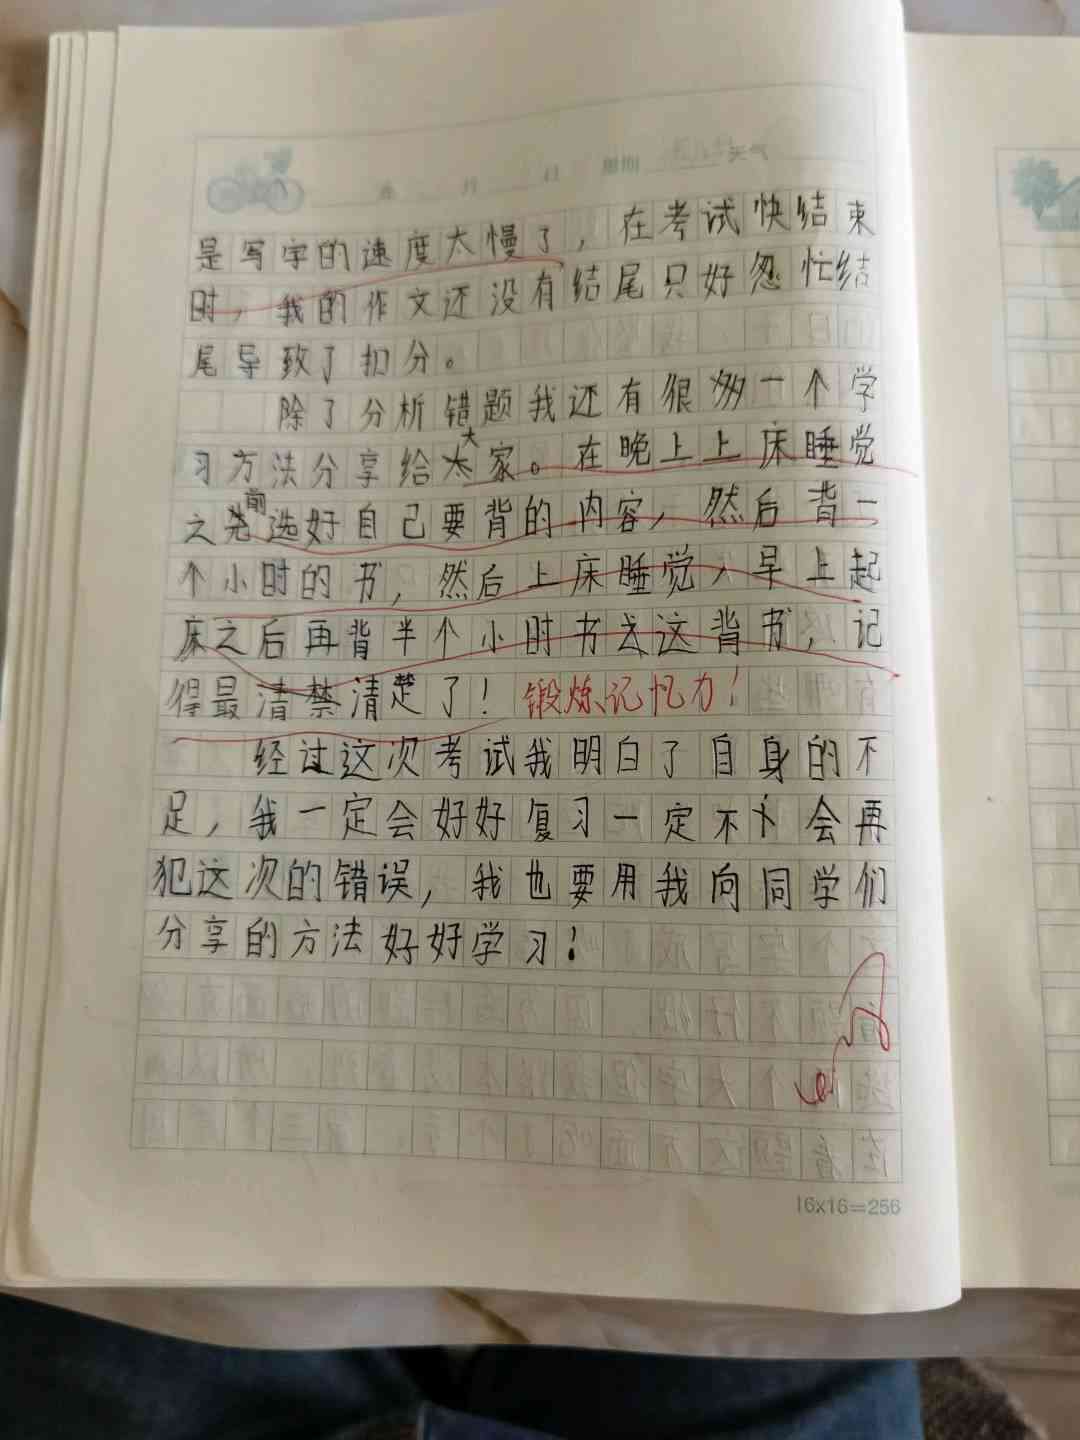 年 月 日 星期 天气
是写字的速度太慢了，在考试快结束
时，我的作文还没有结尾只好忽忙结
尾导致了扣分。
除了分析错题我还有很一个学
习方法分享给大家。在晚上上床睡觉
之前选好自己要背的内容，然后背一
个小时的书，然后上床睡觉，早上起
床之后再背半个小时书去这背书，记
得最清禁清楚了！锻炼记忆力！
经过这次考试我明白了自身的不
足，我一定会好好复习一定不会再
犯这次的错误，我也要用我向同学们
分享的方法好好学习！
16x16=256